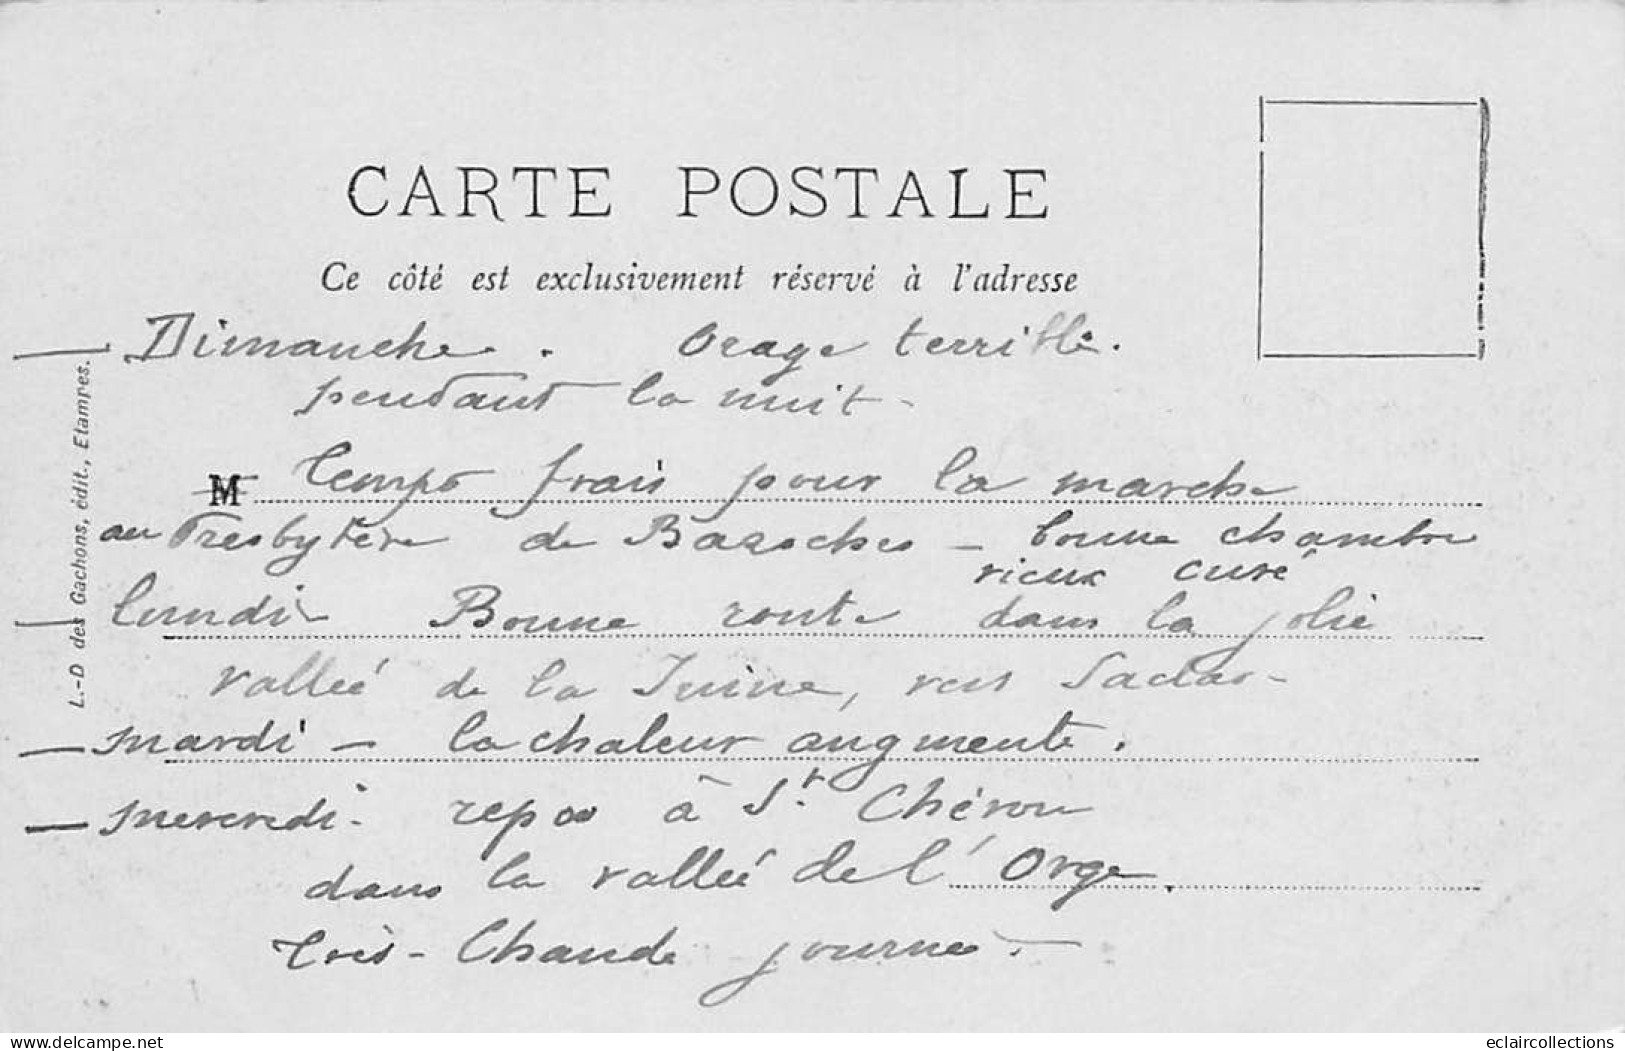 CARTE POSTALE
Ce côté est exclusivement réservé à l'adresse
— Dimanche. Orage terrible.
pendant la nuit -
M Temps frais pour la marche
au Presbytère de Bazoches - bonne chambre
vieux curé
— lundi - Bonne route dans la jolie
vallée de la Juine, vers Saclas -
— mardi - la chaleur augmente.
— mercredi - repos à St. Chéron
dans la vallée de l'Orge.
très-Chaude journée. -
L.-D des Gachons, édit., Etampes.
eclaircollections